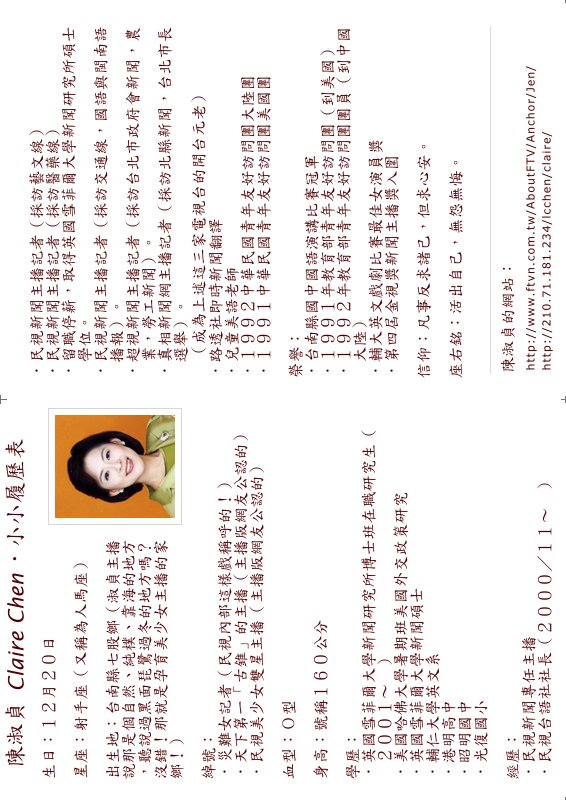 陳淑貞 Claire Chen・小小履歷表
生日：１２月２０日
星座：射手座（又稱為人馬座）
出生地：台南縣七股鄉（淑貞主播
說那是個自然、純樸、靠海的地方
，聽說過黑面琵鷺過冬的地方嗎？
沒錯！那就是孕育美少女主播的家
鄉！）
綽號：
・災難女記者（民視內部這樣戲稱呼的！）
・天下第一「古錐」的主播（主播版網友公認的）
・民視美少女雙星主播（主播版網友公認的）
血型：Ｏ型
身高：號稱１６０公分
學歷：
・英國雪菲爾大學新聞研究所博士班在職研究生（
２００１～）
・美國哈佛大學暑期班美國外交政策研究
・英國雪菲爾大學新聞碩士
・輔仁大學英文系
・港明高中
・昭明國中
・光復國小
經歷：
・民視新聞專任主播
・民視台語社社長（２０００／１１～ ）
・民視新聞主播記者（採訪藝文線）
・民視新聞主播記者（採訪醫藥線）
・留職停薪，取得英國雪菲爾大學新聞研究所碩士
學位。
・民視新聞主播記者（採訪交通線，國語與閩南語
播報）。
・超視新聞主播記者（採訪台北市政府會新聞，農
業，勞工新聞）。
・真相新聞網主播記者（採訪北縣新聞，台北市長
選舉）。
（成為上述這三家電視台的開台元老）
・路透社即時新聞翻譯
・兒童美語老師
・１９９２中華民國青年友好訪問團大陸團
・１９９１中華民國青年友好訪問團美國團
榮譽：
・台南縣國中國語演講比賽冠軍
・１９９１年教育部青年友好訪問團（到美國）
・１９９２年教育部青年友好訪問團團員（到中國
大陸）
・輔大英文戲劇比賽最佳女演員獎
・第四屆金視獎新聞主播獎入圍
信仰：凡事反求諸己，但求心安。
座右銘：活出自己，無怨無悔。
陳淑貞的網站：
http://www.ftvn.com.tw/AboutFTV/Anchor/Jen/
http://210.71.181.234/lcchen/claire/